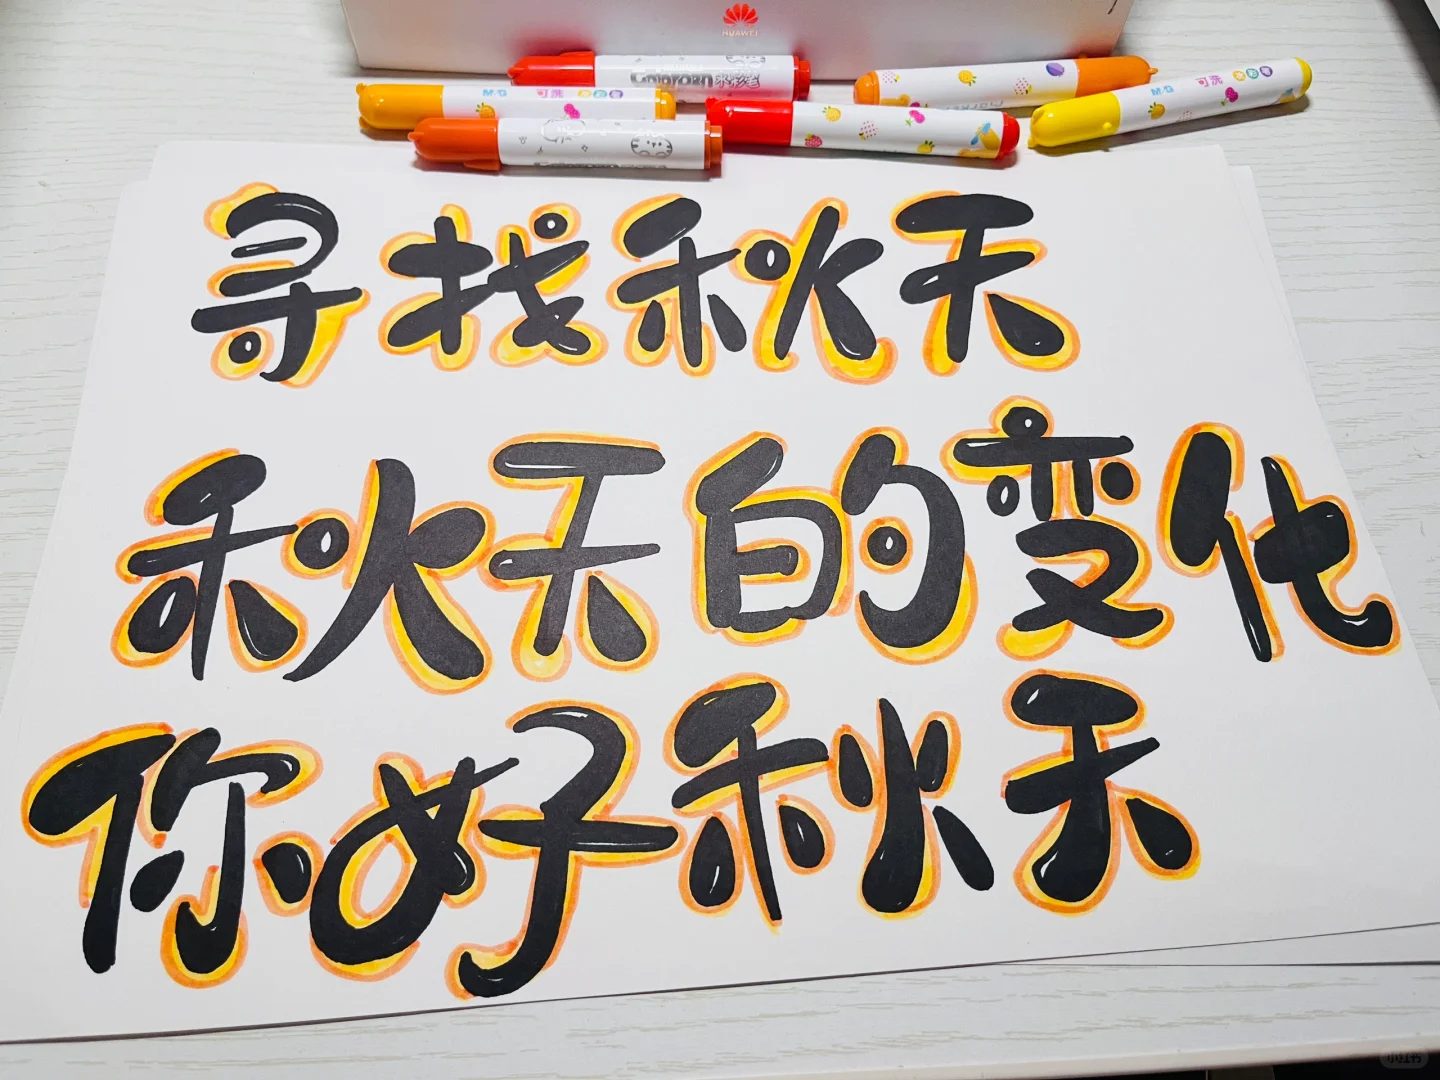 HUAWEI
Colorpen 彩笔
M&G 可洗
M&G 可洗
寻找秋天
秋天的变化
你好秋天
小红书